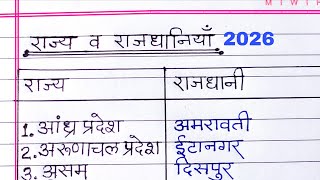 राज्य व राजधानियाँ 2026
राज्य राजधानी
1. आंध्र प्रदेश अमरावती
2. अरूणाचल प्रदेश ईटानगर
3. असम दिसपुर